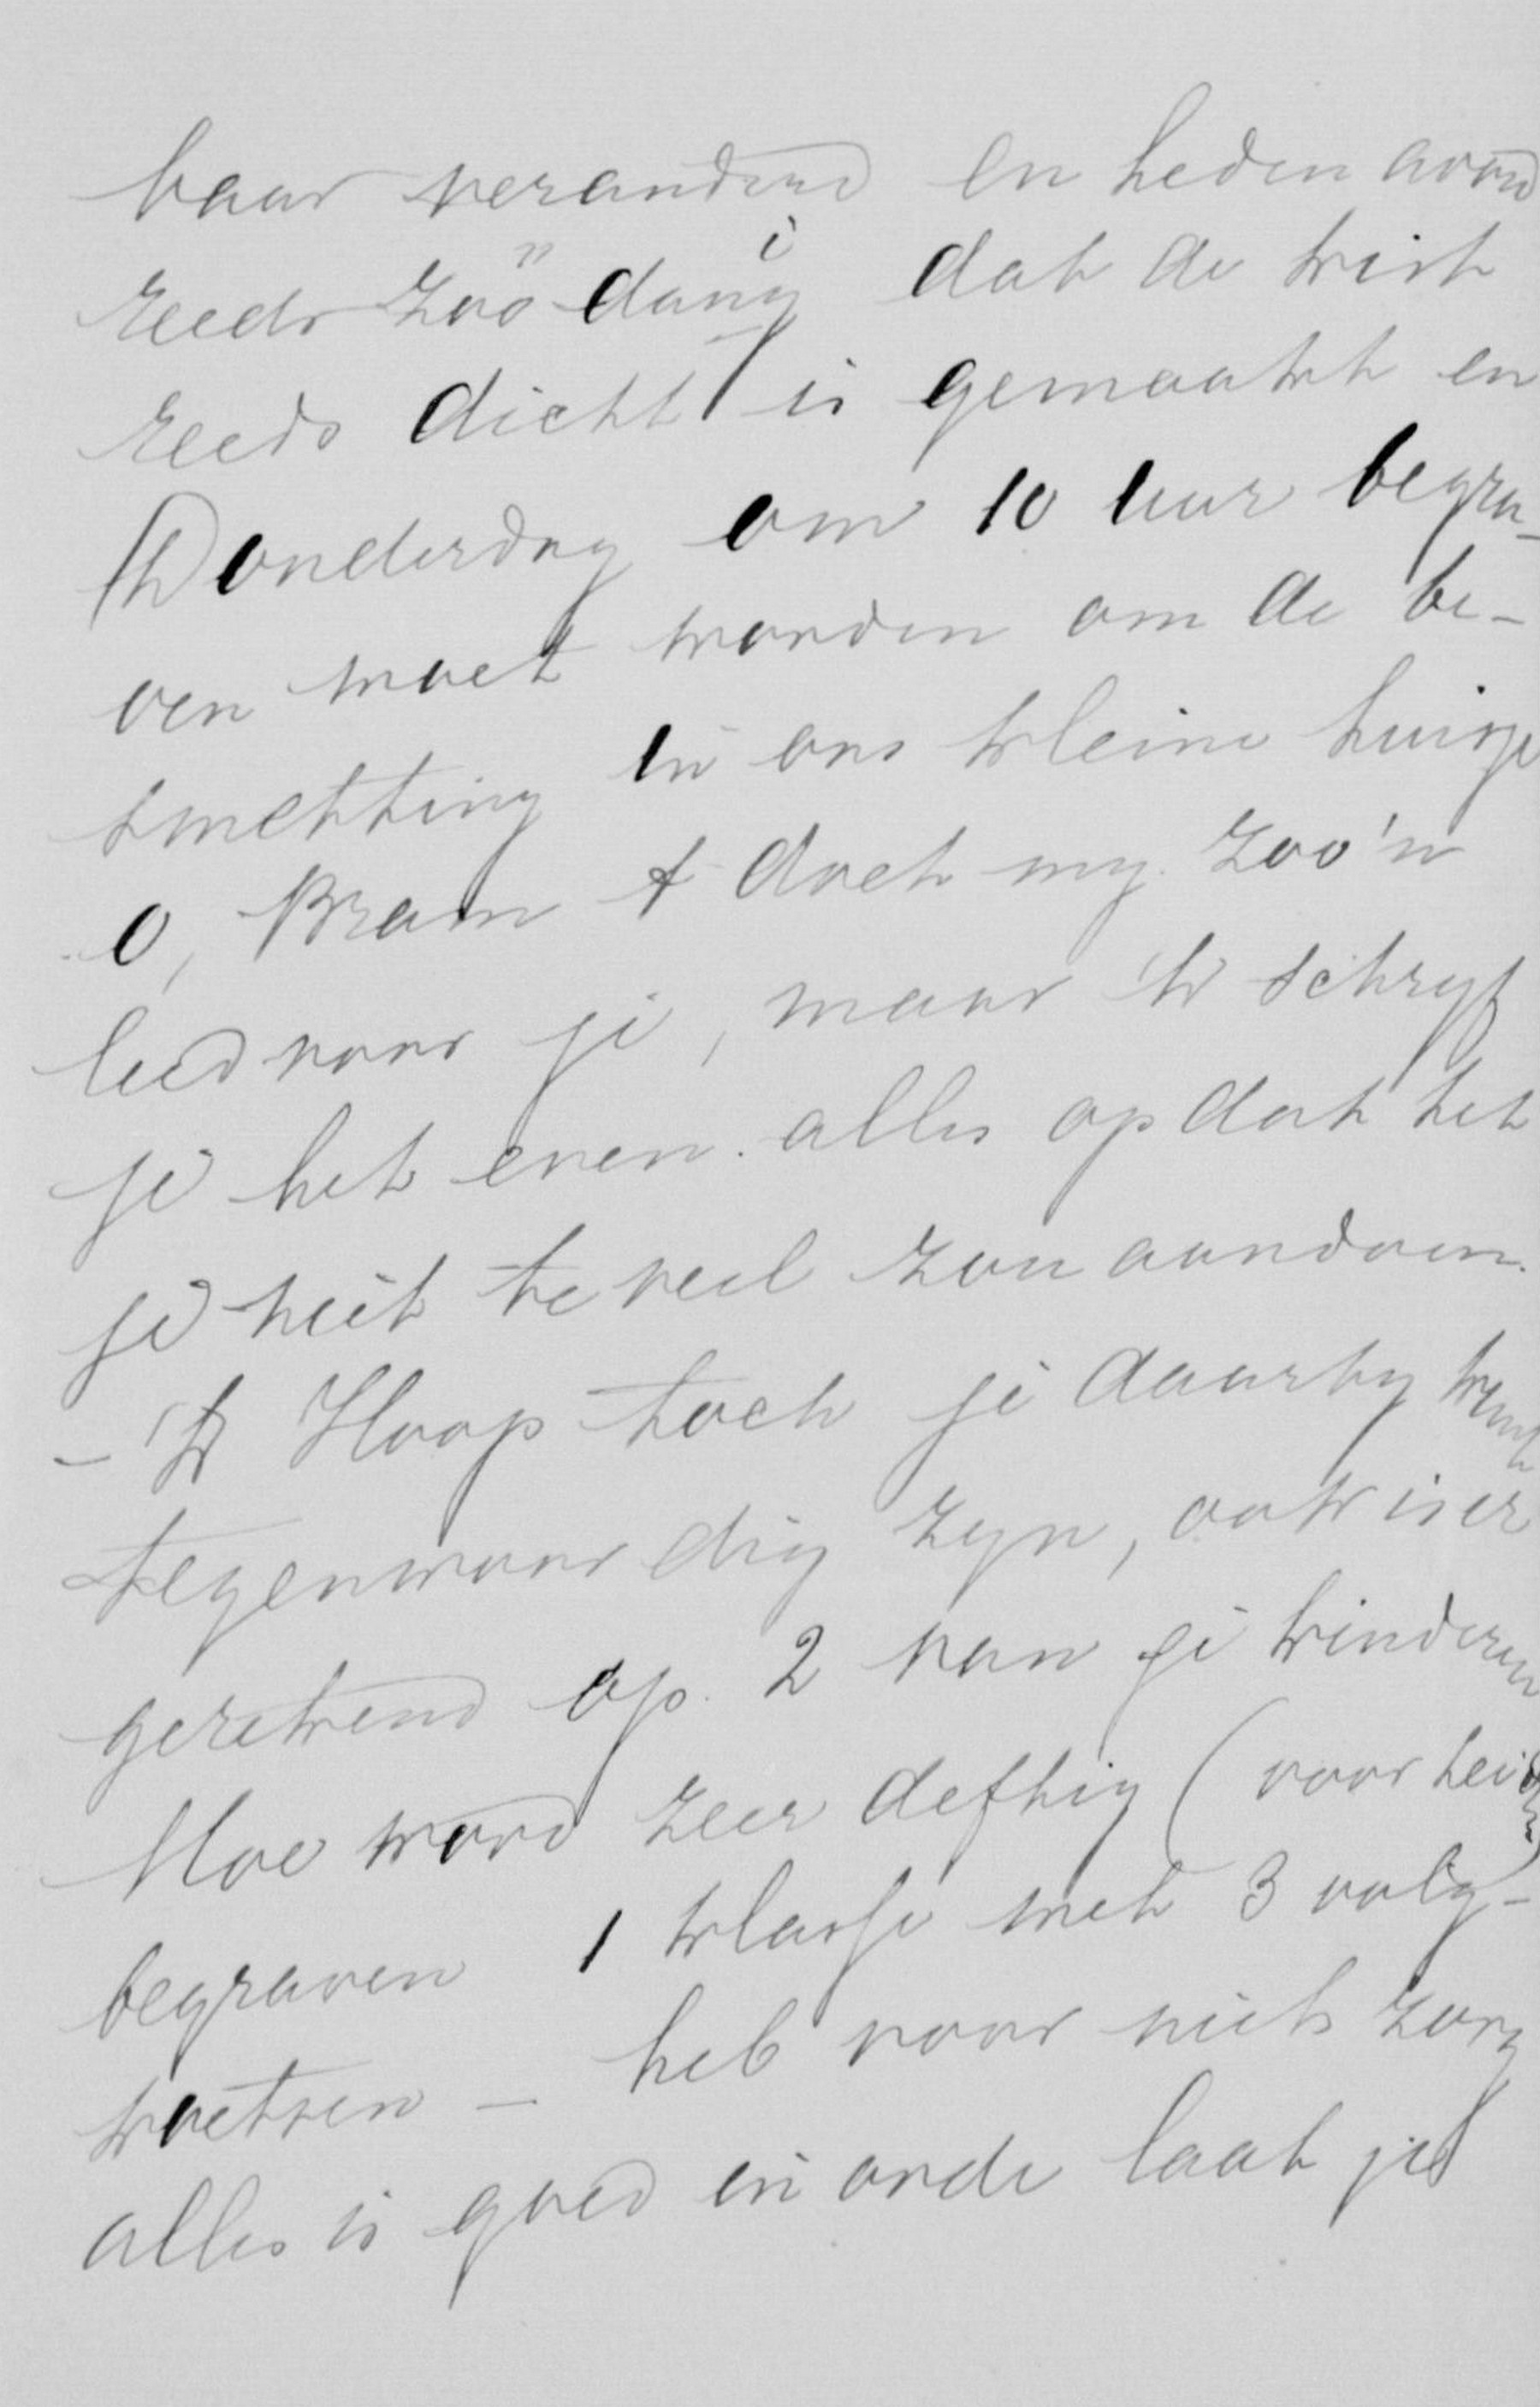 baar veranderd en heden avond
reeds zoo danig dat de kist
reeds dicht is gemaakt en
Donderdag om 10 uur begra-
ven moet worden om de be-
smetting in ons kleine huisje
O, Bram t doet my zoo'n
leed voor je, maar 'k schryf
je het even alles op dat het
je niet te veel zou aandoen.
- 'k Hoop toch je daarby kunt
tegenwoordig zyn, ook is er
gerekend op 2 van je kinderen
Moe word zeer deftig (voor hei
begraven 1 klasse met 3 volg-
koetsen - heb voor niets zorg
alles is goed in orde laat je